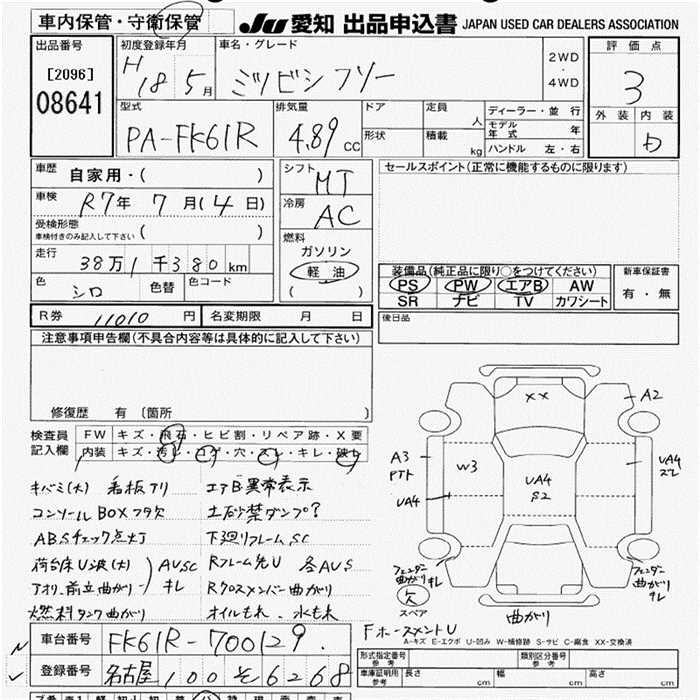 車内保管・守衛保管
JU 愛知 出品申込書 JAPAN USED CAR DEALERS ASSOCIATION
出品番号
[2096]
08641
初度登録年月
H18 5月
車名・グレード
ミツビシフソー
2WD
・
4WD
評価点
3
外装 内装
D
型式
PA-FK61R
排気量
4.89 CC
ドア
形状
定員 人
積載 kg
ディーラー・並行
モデル年式 年
ハンドル 左・右
車歴 自家用・( )
車検 R7年 7月(4日)
受検形態
車検付きのみ記入して下さい ( )
走行 38万1千380km
色 シロ 色替 色コード
シフト MT
冷房 AC
燃料
ガソリン
軽油
( )
セールスポイント(正常に機能するものに限ります)
装備品(純正品に限り○をつけてください)
PS PW エアB AW
SR ナビ TV カワシート
新車保証書
有・無
後日品
R券 11010円 名変期限 月 日
注意事項申告欄(不具合内容等は具体的に記入して下さい)
修復歴 有 〔箇所 〕
検査員
記入欄
FW キズ・飛石・ヒビ割・リペア跡・X要
内装 キズ・汚し・コゲ・穴・スレ・キレ・破レ
キバミ(大) 看板アリ エアB異常表示
コンソールBOXフタ欠 土砂禁ダンプ?
ABSチェック点灯 下廻リフレームSC
荷台床U波(大) AUSC RフレームU 各AUS
アオリ、前立曲がり キレ Rクロスメンバー曲がり
燃料タンク曲がり オイルもれ、水もれ
XX
A2
A3
W3
UA4
S2
UA4
スレ
UA4
フェンダー
曲がり キレ
欠
スペア
フェンダー
曲がり
キレ
曲がり
FホースメントU
A-キズ E-エクボ U-凹み W-補修跡 S-サビ C-腐食 XX-交換済
車台番号 FK61R-700129
登録番号 名古屋 100 そ 6268
形式指定番号
参考
類別区分番号
参考
車庫証明用
参考
長さ cm 幅 cm 高さ cm